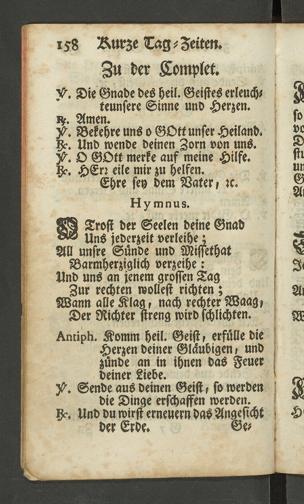 158 Kurze Tag-Zeiten.
Zu der Complet.
℣. Die Gnade des heil. Geistes erleuch-
teunsere Sinne und Herzen.
℟. Amen.
℣. Bekehre uns o GOtt unser Heiland.
℟. Und wende deinen Zorn von uns.
℣. O GOtt merke auf meine Hilfe.
℟. HErr eile mir zu helfen.
Ehre sey dem Vater, ꝛc.
Hymnus.
O Trost der Seelen deine Gnad
Uns jederzeit verleihe;
All unsre Sünde und Missethat
Barmherziglich verzeihe:
Und uns an jenem grossen Tag
Zur rechten wollest richten;
Wann alle Klag, nach rechter Waag,
Der Richter streng wird schlichten.
Antiph. Komm heil. Geist, erfülle die
Herzen deiner Gläubigen, und
zünde an in ihnen das Feuer
deiner Liebe.
℣. Sende aus deinen Geist, so werden
die Dinge erschaffen werden.
℟. Und du wirst erneuern das Angesicht
der Erde. Ge-